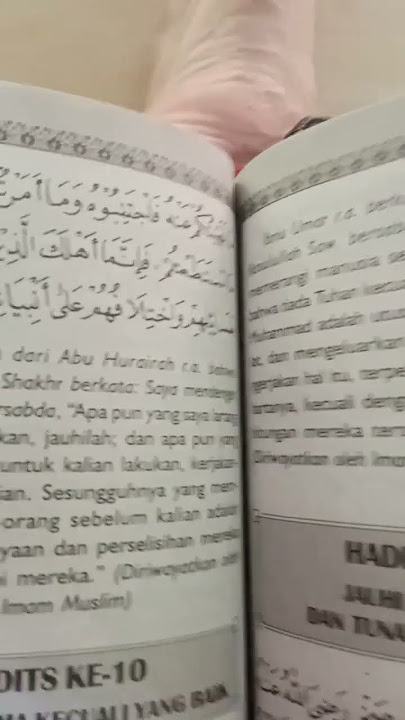 عَنْهُ فَاجْتَنِبُوْهُ وَمَا أَمَرْ
فَإِنَّمَا أَهْلَكَ الَّذِيْ
وَاخْتِلَافُهُمْ عَلَى أَنْبِيَا
dari Abu Hurairah r.a.
Shakhr berkata: Saya mendengar
rsabda, "Apa pun yang saya larang
kan, jauhilah; dan apa pun yang
untuk kalian lakukan, kerjakan
ian. Sesungguhnya yang mem-
-orang sebelum kalian adalah
yaan dan perselisihan mereka
i mereka." (Diriwayatkan oleh
Imam Muslim)
DITS KE-10
MA KECUALI YANG BAIK
Ibnu Umar r.a. berka
Rasulullah Saw. bersabd
memerangi manusia se
bahwa tiada Tuhan kecua
Muhammad adalah utus
at, dan mengeluarkan
ngerjakan hal itu, terpe
hartanya, kecuali deng
hitungan mereka ters
Diriwayatkan oleh Imam
HADI
JAUHI
DAN TUNA